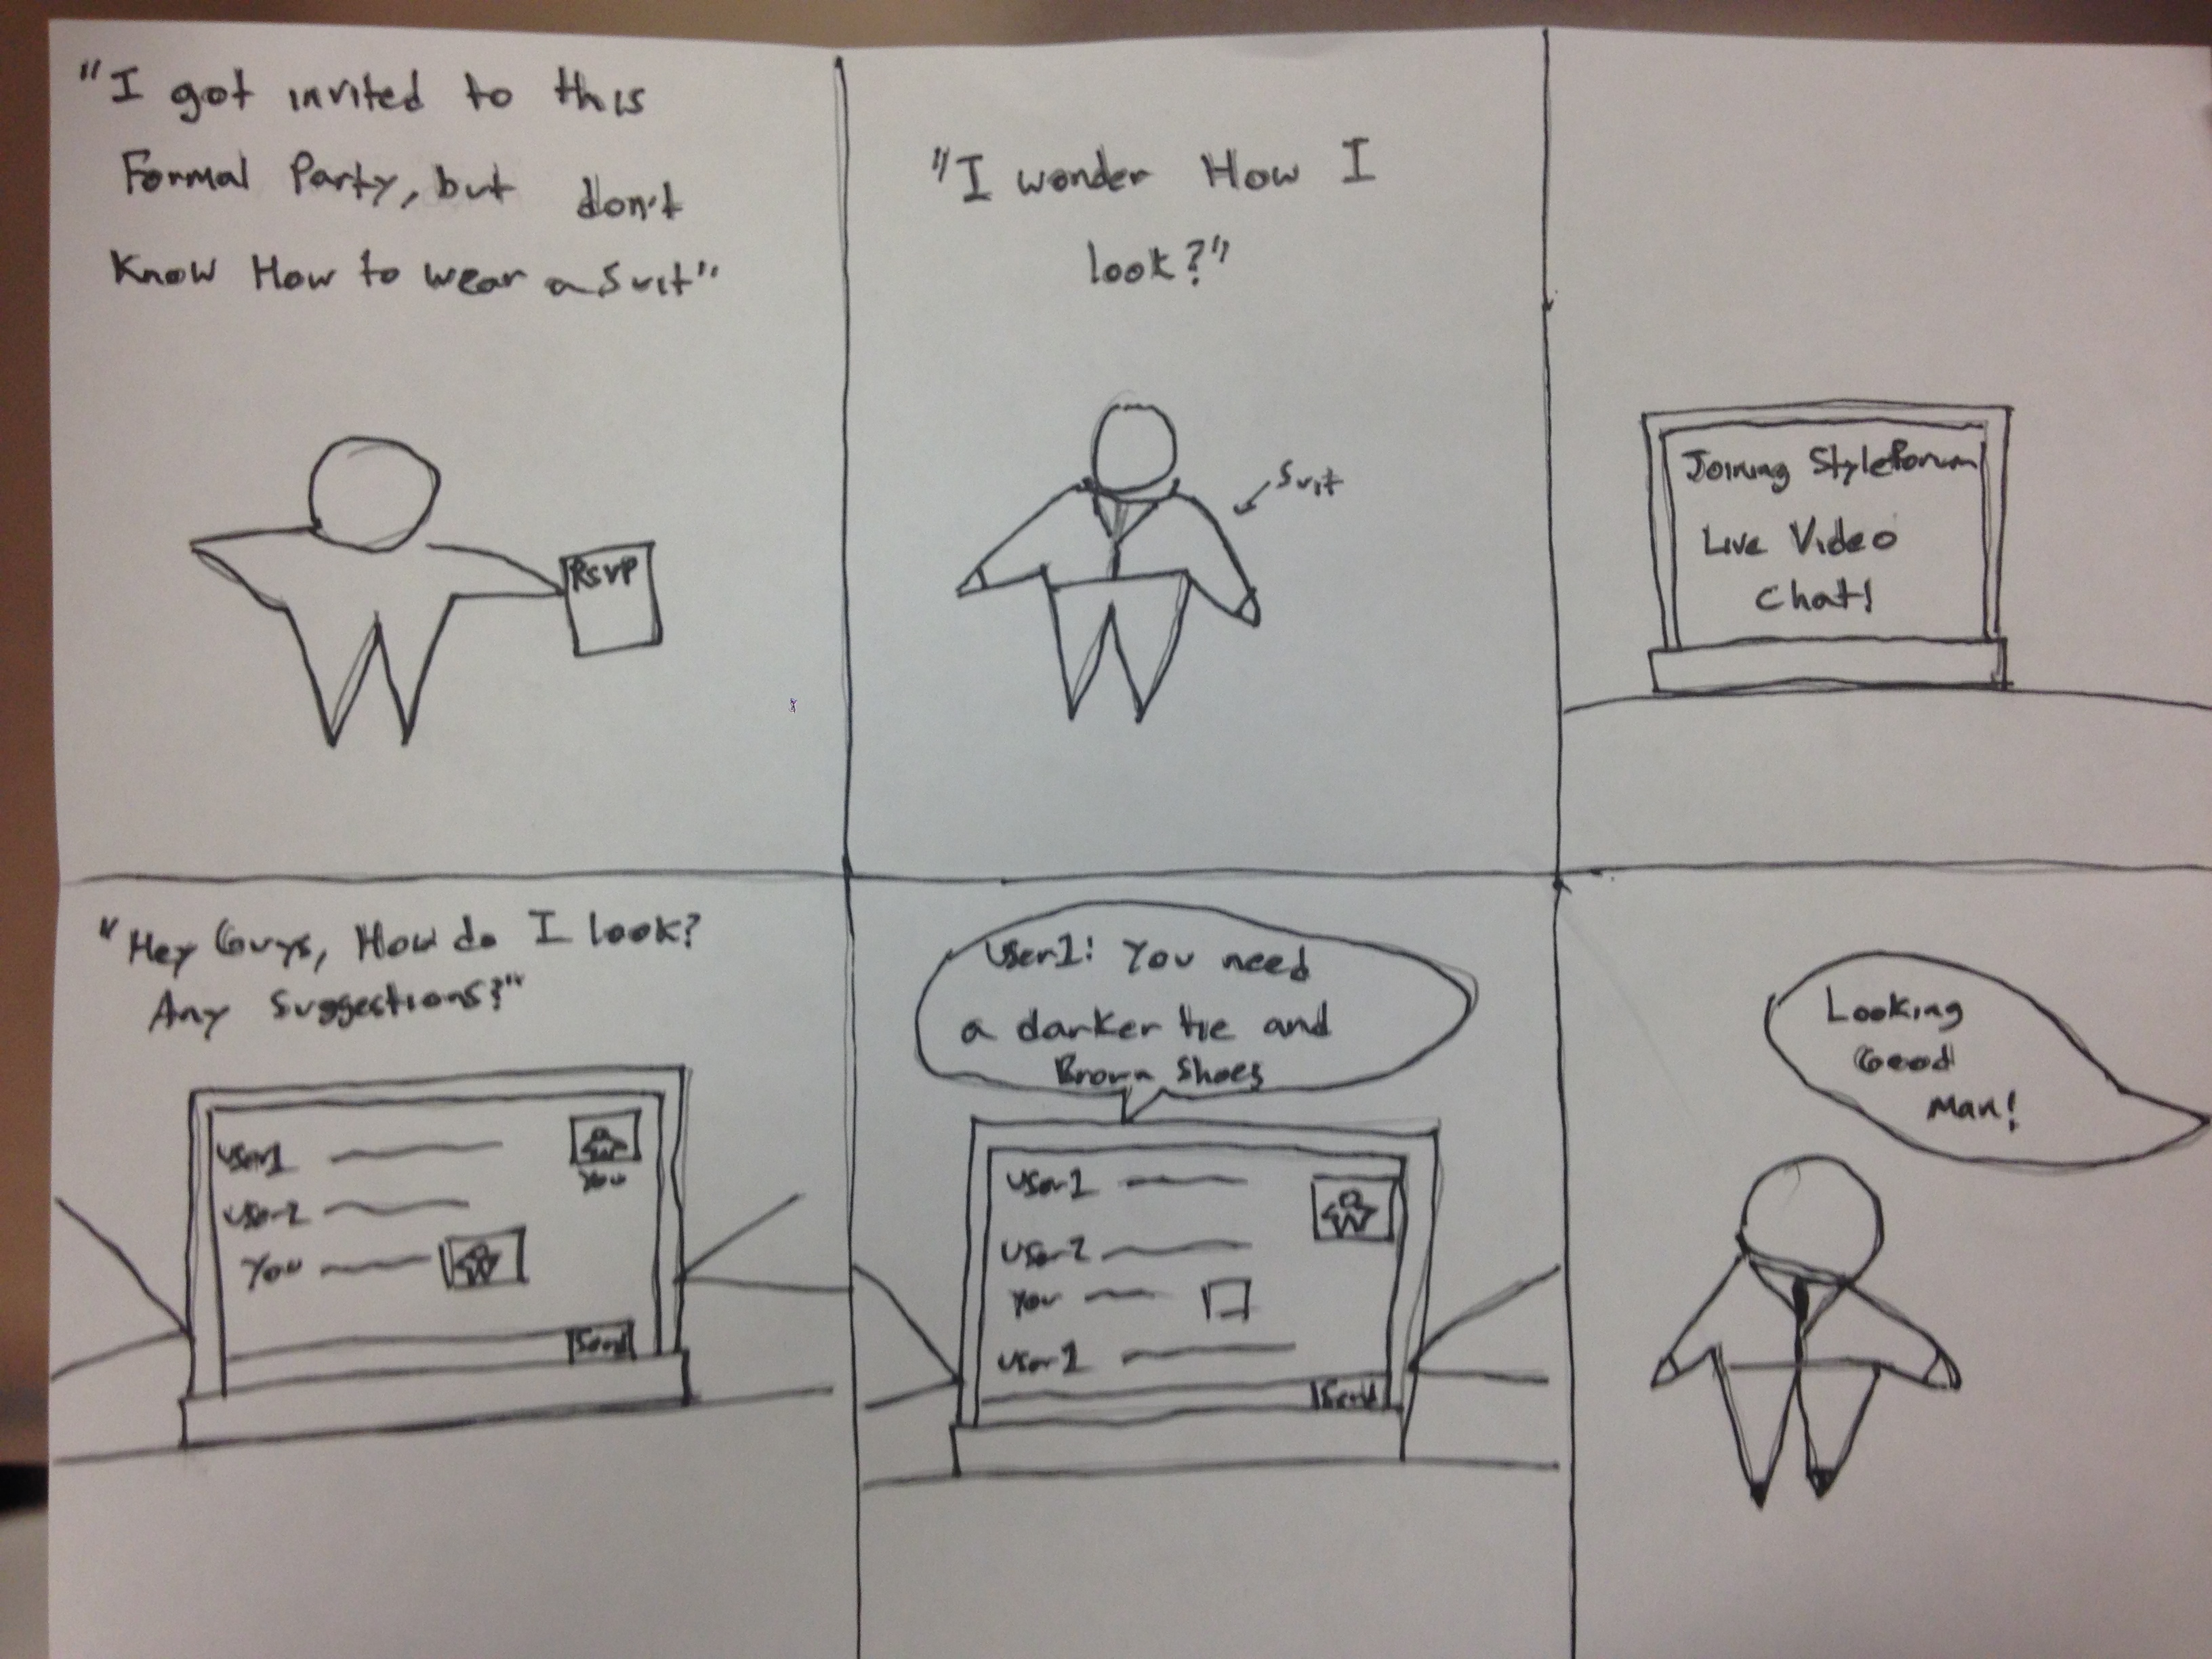 "I got invited to this
Formal Party, but don't
Know How to wear a suit"
RSVP
"I wonder How I
look?"
Suit
Joining StyleForum
Live Video
Chat!
"Hey Guys, How do I look?
Any Suggestions?"
User1
You
User2
You
Send
User1: You need
a darker tie and
Brown Shoes
User1
User2
You
User1
Send
Looking
Good
Man!